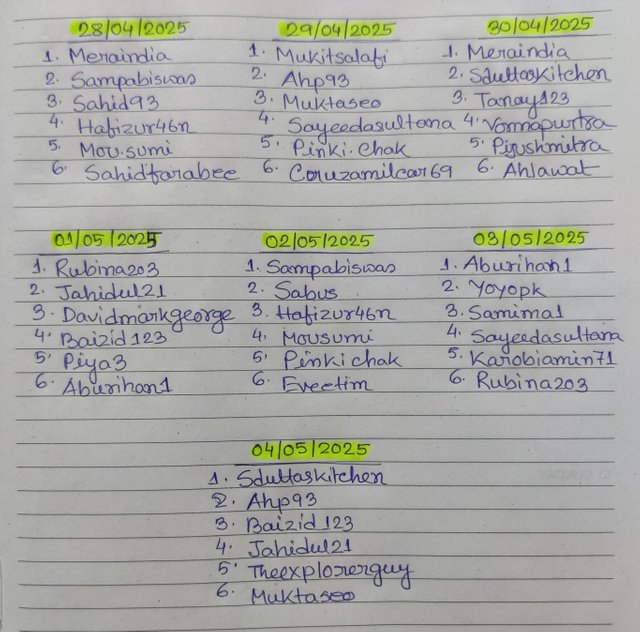 28/04/2025
1. Meraindia
2. Sampabiswas
3. Sahid93
4. Hafizur46n
5. Mou.sumi
6. Sahidfarabee
29/04/2025
1. Mukitsalafi
2. Ahp93
3. Muktaseo
4. Sayeedasultana
5. Pinki.chak
6. Coruzamilcar69
30/04/2025
1. Meraindia
2. Sduttaskitchen
3. Tanay123
4. Vannapurtra
5. Piyushmitra
6. Ahlawat
01/05/2025
1. Rubina203
2. Jahidul21
3. Davidmarkgeorge
4. Baizid123
5. Piya3
6. Aburihan1
02/05/2025
1. Sampabiswas
2. Sabus
3. Hafizur46n
4. Mousumi
5. Pinkichak
6. Eveetim
03/05/2025
1. Aburihan1
2. Yoyopk
3. Samima1
4. Sayeedasultana
5. Karobiamin71
6. Rubina203
04/05/2025
1. Sduttaskitchen
2. Ahp93
3. Baizid123
4. Jahidul21
5. Theexplorerguy
6. Muktaseo